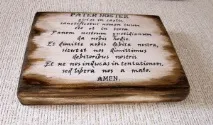 PATER NOSTER
qui es in caelis,
sanctificetur nomen tuum
Panem nostrum quotidianum
da nobis hodie.
Et dimitte nobis debita nostra,
sicut et nos dimittimus
debitoribus nostris.
Et ne nos inducas in tentationem,
sed libera nos a malo.
AMEN.